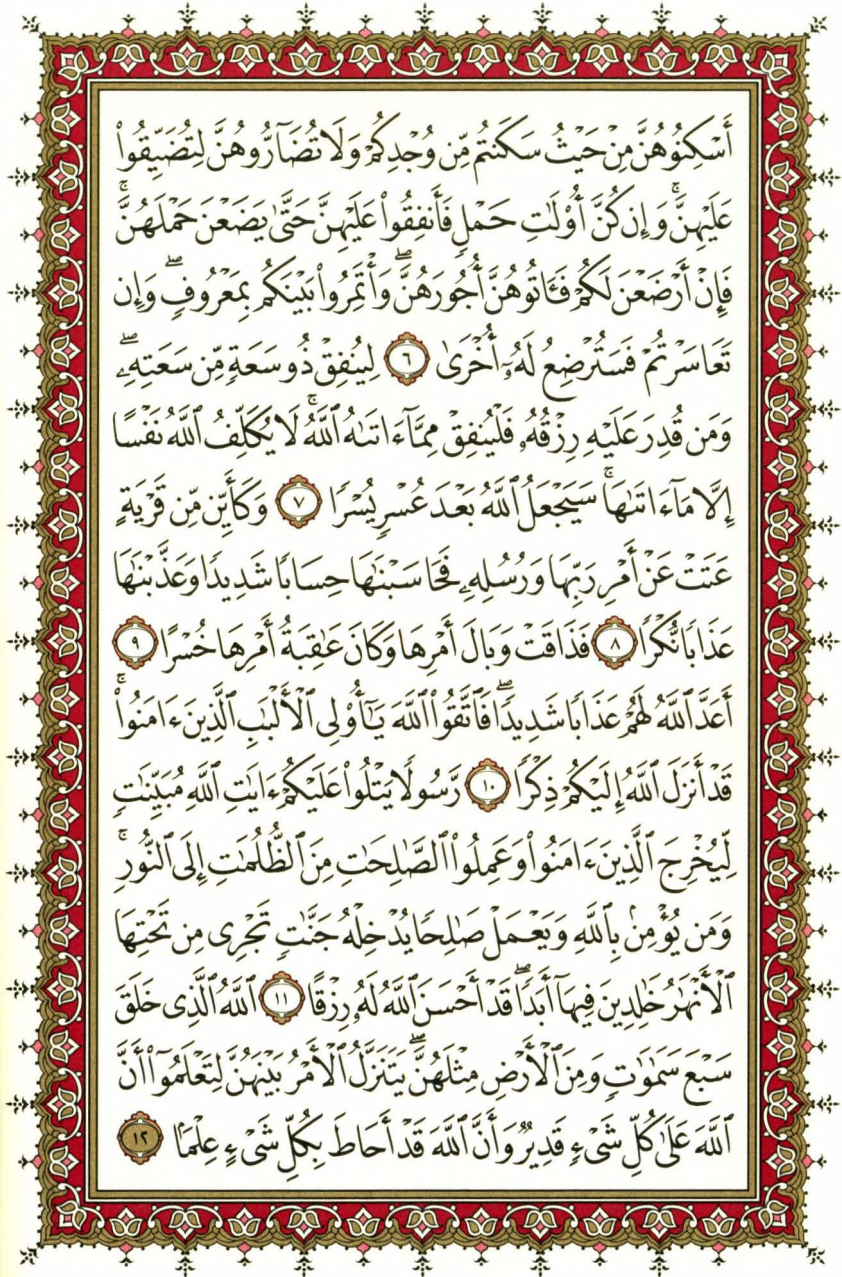 أَسْكِنُوهُنَّ مِنْ حَيْثُ سَكَنتُم مِّن وُجْدِكُمْ وَلَا تُضَآرُّوهُنَّ لِتُضَيِّقُوا۟
عَلَيْهِنَّ ۚ وَإِن كُنَّ أُو۟لَٰتِ حَمْلٍ فَأَنفِقُوا۟ عَلَيْهِنَّ حَتَّىٰ يَضَعْنَ حَمْلَهُنَّ ۚ
فَإِنْ أَرْضَعْنَ لَكُمْ فَـَٔاتُوهُنَّ أُجُورَهُنَّ ۖ وَأْتَمِرُوا۟ بَيْنَكُم بِمَعْرُوفٍ ۖ وَإِن
تَعَاسَرْتُمْ فَسَتُرْضِعُ لَهُۥٓ أُخْرَىٰ ٦ لِيُنفِقْ ذُو سَعَةٍ مِّن سَعَتِهِۦ ۖ
وَمَن قُدِرَ عَلَيْهِ رِزْقُهُۥ فَلْيُنفِقْ مِمَّآ ءَاتَىٰهُ ٱللَّهُ ۚ لَا يُكَلِّفُ ٱللَّهُ نَفْسًا
إِلَّا مَآ ءَاتَىٰهَا ۚ سَيَجْعَلُ ٱللَّهُ بَعْدَ عُسْرٍ يُسْرًا ٧ وَكَأَيِّن مِّن قَرْيَةٍ
عَتَتْ عَنْ أَمْرِ رَبِّهَا وَرُسُلِهِۦ فَحَاسَبْنَٰهَا حِسَابًا شَدِيدًا وَعَذَّبْنَٰهَا
عَذَابًا نُّكْرًا ٨ فَذَاقَتْ وَبَالَ أَمْرِهَا وَكَانَ عَٰقِبَةُ أَمْرِهَا خُسْرًا ٩
أَعَدَّ ٱللَّهُ لَهُمْ عَذَابًا شَدِيدًا ۖ فَٱتَّقُوا۟ ٱللَّهَ يَٰٓأُو۟لِى ٱلْأَلْبَٰبِ ٱلَّذِينَ ءَامَنُوا۟ ۚ
قَدْ أَنزَلَ ٱللَّهُ إِلَيْكُمْ ذِكْرًا ١٠ رَّسُولًا يَتْلُوا۟ عَلَيْكُمْ ءَايَٰتِ ٱللَّهِ مُبَيِّنَٰتٍ
لِّيُخْرِجَ ٱلَّذِينَ ءَامَنُوا۟ وَعَمِلُوا۟ ٱلصَّٰلِحَٰتِ مِنَ ٱلظُّلُمَٰتِ إِلَى ٱلنُّورِ ۚ
وَمَن يُؤْمِنۢ بِٱللَّهِ وَيَعْمَلْ صَٰلِحًا يُدْخِلْهُ جَنَّٰتٍ تَجْرِى مِن تَحْتِهَا
ٱلْأَنْهَٰرُ خَٰلِدِينَ فِيهَآ أَبَدًا ۖ قَدْ أَحْسَنَ ٱللَّهُ لَهُۥ رِزْقًا ١١ ٱللَّهُ ٱلَّذِى خَلَقَ
سَبْعَ سَمَٰوَٰتٍ وَمِنَ ٱلْأَرْضِ مِثْلَهُنَّ ۖ يَتَنَزَّلُ ٱلْأَمْرُ بَيْنَهُنَّ لِتَعْلَمُوٓا۟ أَنَّ
ٱللَّهَ عَلَىٰ كُلِّ شَىْءٍ قَدِيرٌ وَأَنَّ ٱللَّهَ قَدْ أَحَاطَ بِكُلِّ شَىْءٍ عِلْمًۢا ١٢